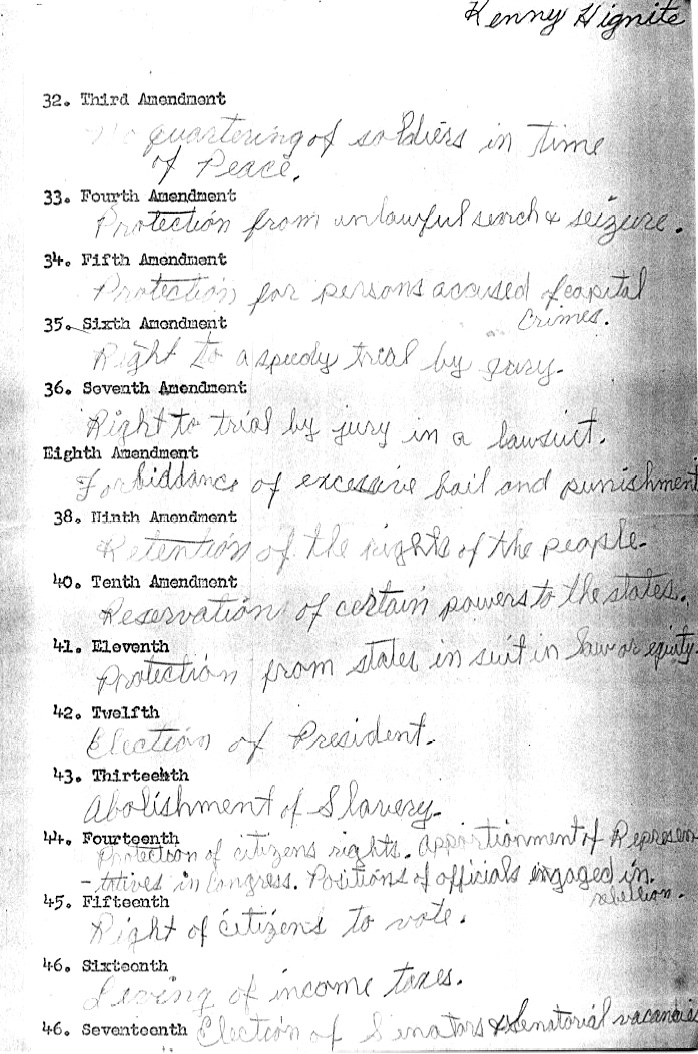 Kenny Hignite
32. Third Amendment
No quartering of soldiers in time
of Peace.
33. Fourth Amendment
Protection from unlawful serch & seizure.
34. Fifth Amendment
Protection for persons accused of capital
crimes.
35. Sixth Amendment
Right to a speedy trial by jury.
36. Seventh Amendment
Right to trial by jury in a lawsuit.
Eighth Amendment
Forbiddance of excessive bail and punishment
38. Ninth Amendment
Retention of the rights of the people.
40. Tenth Amendment
Reservation of certain powers to the states.
41. Eleventh
Protection from states in suit in law or equity.
42. Twelfth
Election of President.
43. Thirteehth
Abolishment of Slavery.
44. Fourteenth
Protection of citizens rights. Apportionment of Represen-
-tatives in Congress. Positions of officials engaged in
rebellion.
45. Fifteenth
Right of citizens to vote.
46. Sixteenth
Leving of income taxes.
46. Seventeenth Election of Senators & Senatorial vacancies